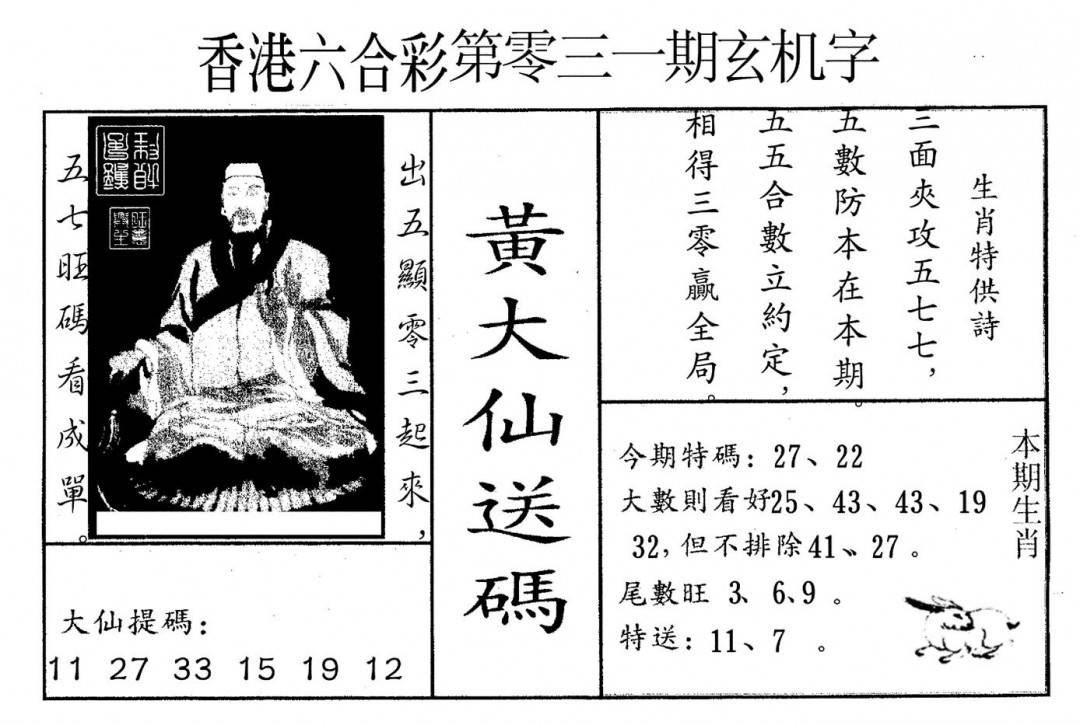 香港六合彩第零三一期玄机字
出五顯零三起來，
五七旺碼看成單。
黃大仙送碼
生肖特供詩
三面夾攻五七七，
五數防本在本期。
五五合數立約定，
相得三零贏全局。
大仙提碼：
11 27 33 15 19 12
本期生肖
今期特碼：27、22
大數則看好25、43、43、19
32，但不排除41、27。
尾數旺 3、6、9。
特送：11、7 。